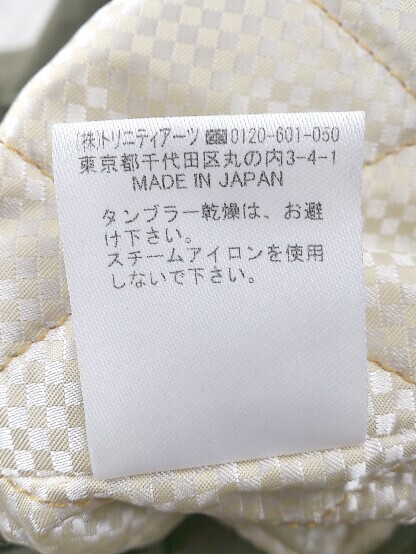 (株)トリニティアーツ 0120-601-050
東京都千代田区丸の内3-4-1
MADE IN JAPAN
タンブラー乾燥は、お避
け下さい。
スチームアイロンを使用
しないで下さい。